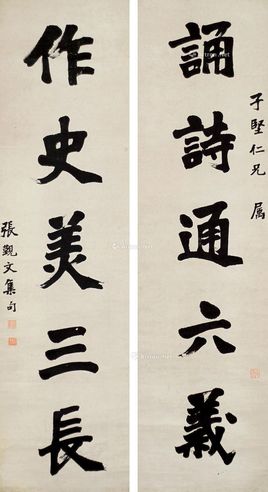 子堅仁兄 属
誦詩通六義
作史美三長
張觀文集句